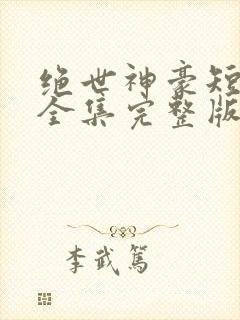 绝世神豪短
全集完整版
李武笃